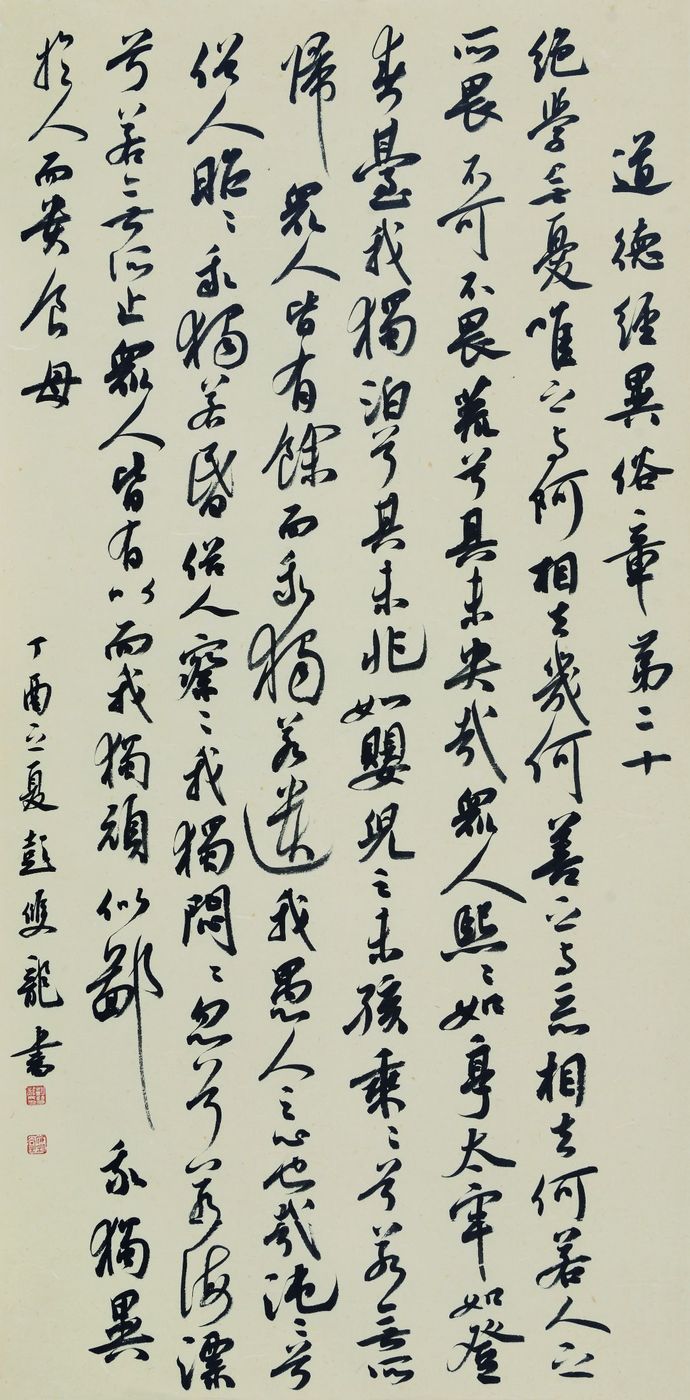 道德經異俗章第二十
絕學無憂唯之與阿相去幾何善之與惡相去何若人之
所畏不可不畏荒兮其未央哉眾人熙〻如享太牢如登
春臺我獨泊兮其未兆如嬰兒之未孩乘〻兮若無所
歸眾人皆有餘而我獨若遺我愚人之心也哉沌〻兮
俗人昭〻我獨若昏俗人察〻我獨悶〻忽兮若海漂
兮若無所止眾人皆有以而我獨頑似鄙我獨異
於人而貴食母
丁酉之夏彭雙龍書